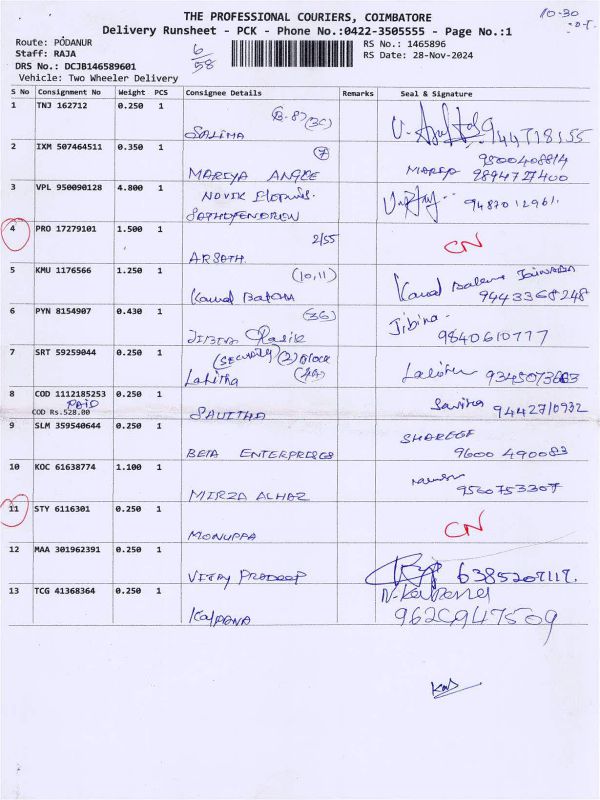 THE PROFESSIONAL COURIERS, COIMBATORE
10-30
Delivery Runsheet - PCK - Phone No.:0422-3505555 - Page No.:1
Route: PODANUR
Staff: RAJA
DRS No.: DCJB146589601
Vehicle: Two Wheeler Delivery
6/58
RS No.: 1465896
RS Date: 28-Nov-2024
S No Consignment No Weight PCS Consignee Details Remarks Seal & Signature
1 TNJ 162712 0.250 1 B-87 (3C)
SALIMA 944718155
2 IXM 507464511 0.350 1 7 9500408814
MARIYA 9894727400
3 VPL 950090128 4.800 1 NOVIK
9487012961
4 PRO 17279101 1.500 1 2/55 CN
ARSATH
5 KMU 1176566 1.250 1 (10,11) Kamal
Kamal Batcha 9443368248
6 PYN 8154907 0.430 1 (3G) Jibina
Rasik 9840610777
7 SRT 59259044 0.250 1 (SECURITY) (2) Block
Lalitha (4A)
8 COD 1112185253 0.250 1 Savitha
PAID
COD Rs.528.00 SAVITHA 9442710932
9 SLM 359540644 0.250 1 SHAREEF
BETA ENTERPRISES 9600 490083
10 KOC 61638774 1.100 1
MIRZA 9500753307
11 STY 6116301 0.250 1 CN
MONUPPA
12 MAA 301962391 0.250 1
VIJAY PRADEEP 6385207117.
13 TCG 41368364 0.250 1 N. Kalpana
Kalpana 9629947509